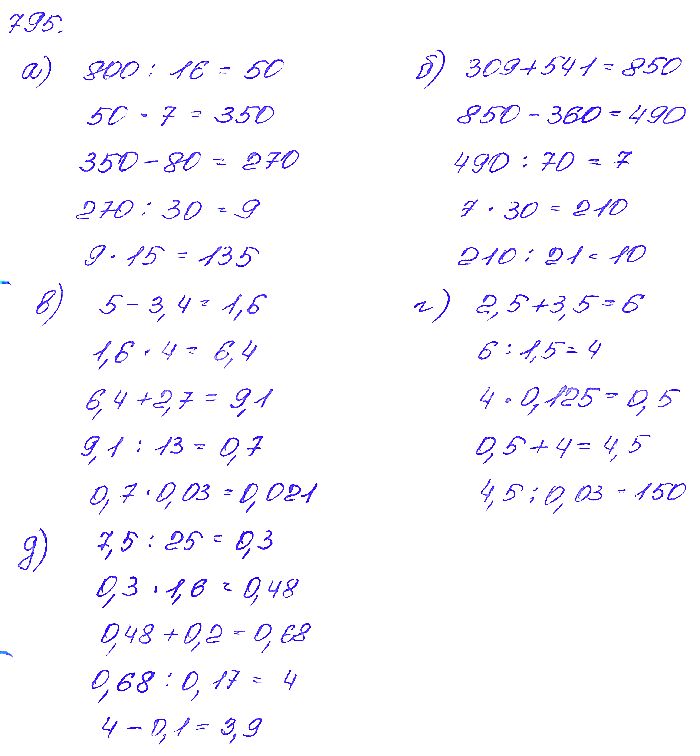 795.
а) 800 : 16 = 50
50 · 7 = 350
350 - 80 = 270
270 : 30 = 9
9 · 15 = 135
б) 309 + 541 = 850
850 - 360 = 490
490 : 70 = 7
7 · 30 = 210
210 : 21 = 10
в) 5 - 3,4 = 1,6
1,6 · 4 = 6,4
6,4 + 2,7 = 9,1
9,1 : 13 = 0,7
0,7 · 0,03 = 0,021
г) 2,5 + 3,5 = 6
6 : 1,5 = 4
4 · 0,125 = 0,5
0,5 + 4 = 4,5
4,5 : 0,03 = 150
д) 7,5 : 25 = 0,3
0,3 · 1,6 = 0,48
0,48 + 0,2 = 0,68
0,68 : 0,17 = 4
4 - 0,1 = 3,9